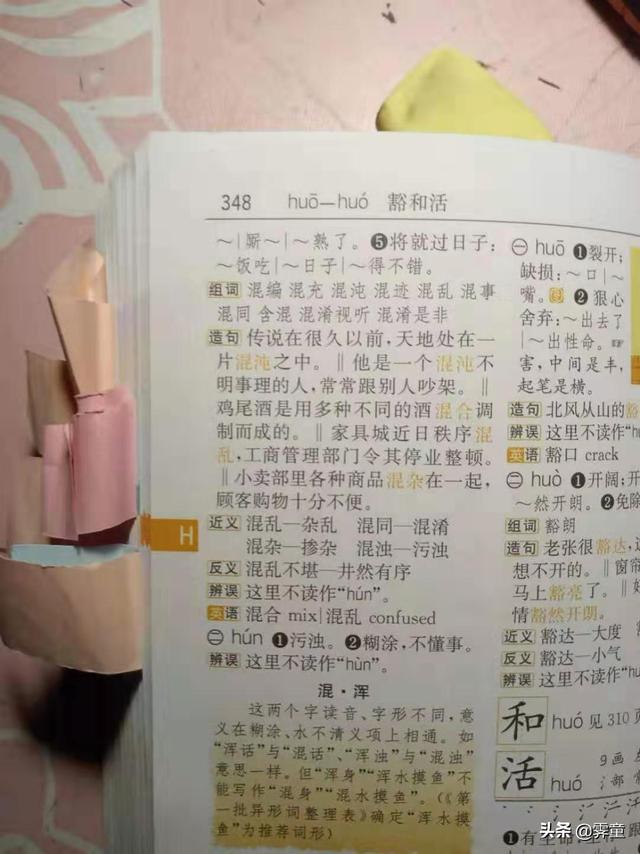 348 huō—huó 豁和活
～|厮～|～熟了。❺将就过日子：
～饭吃|～日子|～得不错。
组词 混编 混充 混沌 混迹 混乱 混事
混同 含混 混淆视听 混淆是非
造句 传说在很久以前，天地处在一
片混沌之中。‖他是一个混沌不
明事理的人，常常跟别人吵架。‖
鸡尾酒是用多种不同的酒混合调
制而成的。‖家具城近日秩序混
乱，工商管理部门令其停业整顿。
‖小卖部里各种商品混杂在一起，
顾客购物十分不便。
近义 混乱—杂乱 混同—混淆
混杂—掺杂 混浊—污浊
反义 混乱不堪—井然有序
辨误 这里不读作“hún”。
英语 混合 mix|混乱 confused
㊂ hún ❶污浊。❷糊涂，不懂事。
辨误 这里不读作“hùn”。
混·浑
这两个字读音、字形不同，意
义在糊涂、水不清义项上相通。如
“浑话”与“混话”、“浑浊”与“混浊”
意思一样。但“浑身”“浑水摸鱼”不
能写作“混身”“混水摸鱼”。（《第
一批异形词整理表》确定“浑水摸
鱼”为推荐词形）
H
㊀ huō ❶裂开；
缺损：～口|～
嘴。❷狠心
舍弃：～出去了
|～出性命。
害，中间是丰，
起笔是横。
造句 北风从山的豁
辨误 这里不读作“hu
英语 豁口 crack
㊁ huò ❶开阔；开
～然开朗。❷免除
组词 豁朗
造句 老张很豁达，
想不开的。‖窗帘
马上豁亮了。‖
情豁然开朗。
近义 豁达—大度
反义 豁达—小气
辨误 这里不读作“hu
和 huó 见 310 页
活 huó 9画
氵部
❶有生命
头条 @霁童